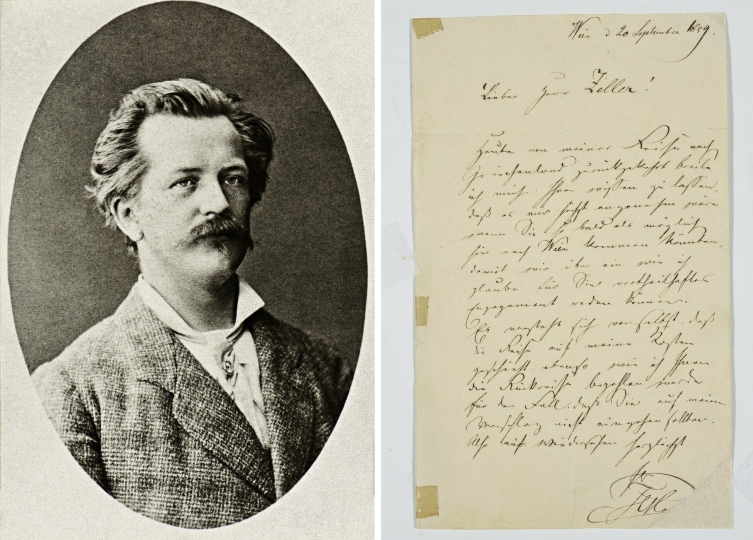 Wien d 20 September 1889.
Lieber Herr Zeller!
Heute von meiner Reise nach
Griechenland zurückgekehrt beeile
ich mich Ihnen wissen zu lassen,
daß es mir sehr angenehm wäre
wenn Sie so bald als möglich
hier nach Wien kommen könnten,
damit wir über ein wie ich
glaube für Sie vortheilhaftes
Engagement reden können.
Es versteht sich von selbst, daß
die Reise auf meine Kosten
geschieht ebenso wie ich Ihnen
die Rückreise bezahlen werde
für den Fall, daß Sie auf meinen
Vorschlag nicht eingehen sollten.
Also auf Wiedersehen herzlichst